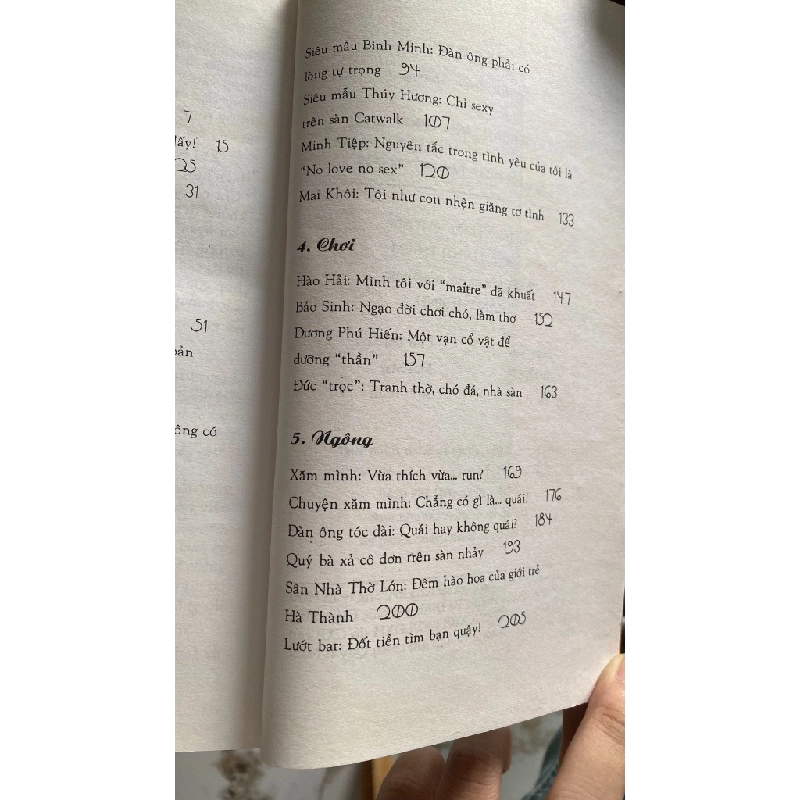 7
lấy! 15
25
31
51
bản
ông có
Siêu mẫu Bình Minh: Đàn ông phải có
lòng tự trọng 94
Siêu mẫu Thúy Hương: Chỉ sexy
trên sàn Catwalk 107
Minh Tiệp: Nguyên tắc trong tình yêu của tôi là
"No love no sex" 120
Mai Khôi: Tôi như con nhện giăng tơ tình 133
4. Chơi
Hào Hải: Mình tôi với "maitre" đã khuất 147
Bảo Sinh: Ngạo đời chơi chó, làm thơ 152
Dương Phú Hiến: Một vạn cổ vật để
dưỡng "thần" 157
Đức "trọc": Tranh thờ, chó đá, nhà sàn 163
5. Ngông
Xăm mình: Vừa thích vừa... run! 169
Chuyện xăm mình: Chẳng có gì là... quái! 176
Đàn ông tóc dài: Quái hay không quái? 184
Quý bà xả cô đơn trên sàn nhảy 193
Sân Nhà Thờ Lớn: Đêm hào hoa của giới trẻ
Hà Thành 200
Lướt bar: Đốt tiền tìm bạn quậy! 205